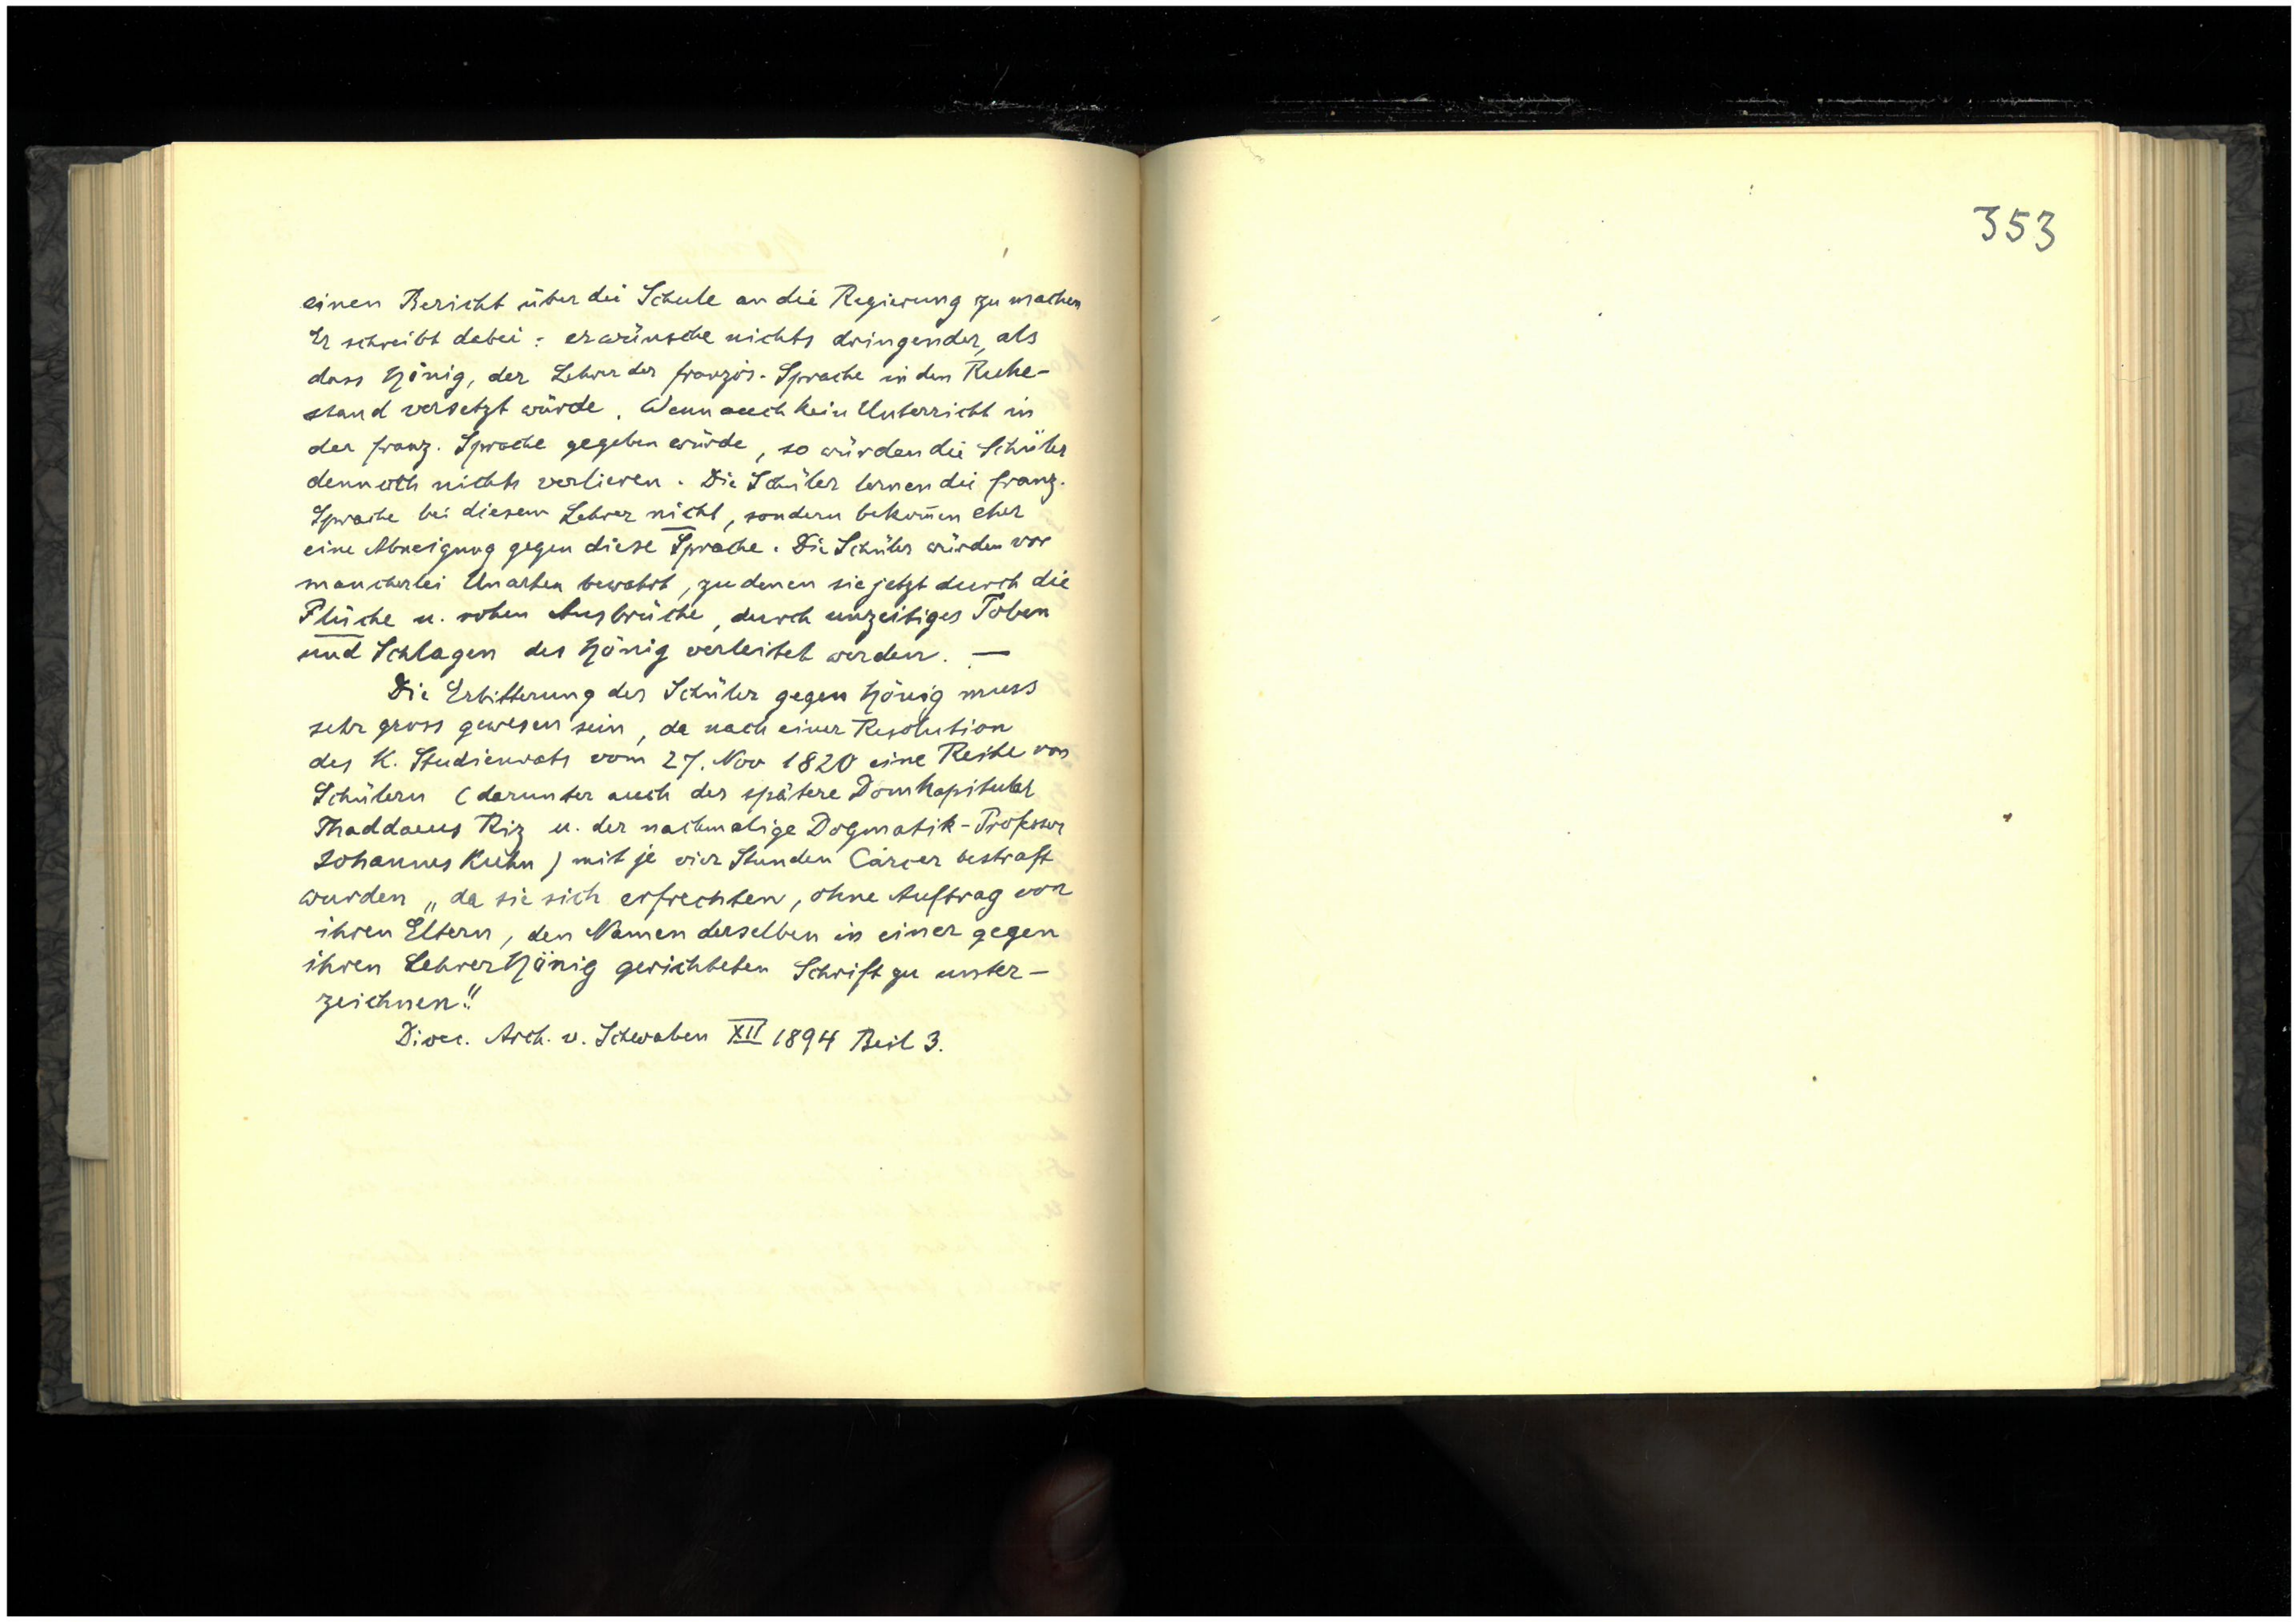 einen Bericht über die Schule an die Regierung zu machen
Er schreibt dabei: er wünsche nichts dringender, als
dass Hönig, der Lehrer der französ. Sprache in den Ruhe-
stand versetzt würde. Wenn auch kein Unterricht in
der franz. Sprache gegeben würde, so würden die Schüler
dennoch nichts verlieren. Die Schüler lernen die franz.
Sprache bei diesem Lehrer nicht, sondern bekom̄en eher
eine Abneigung gegen diese Sprache. Die Schüler würden vor
mancherlei Unarten bewahrt, zu denen sie jetzt durch die
Flüche u. rohen Ausbrüche, durch unzeitiges Toben
und Schlagen des Hönig verleitet werden. —
Die Erbitterung der Schüler gegen Hönig muss
sehr gross gewesen sein, da nach einer Resolution
des K. Studienrats vom 27. Nov 1820 eine Reihe von
Schülern (darunter auch der spätere Domkapitular
Thaddaeus Riz u. der nachmalige Dogmatik-Professor
Johannes Kuhn) mit je vier Stunden Carcer bestraft
wurden „da sie sich erfrechten, ohne Auftrag von
ihren Eltern, den Namen derselben in einer gegen
ihren Lehrer Hönig gerichteten Schrift zu unter-
zeichnen."
Dioec. Arch. v. Schwaben XII 1894 Beil 3.
353